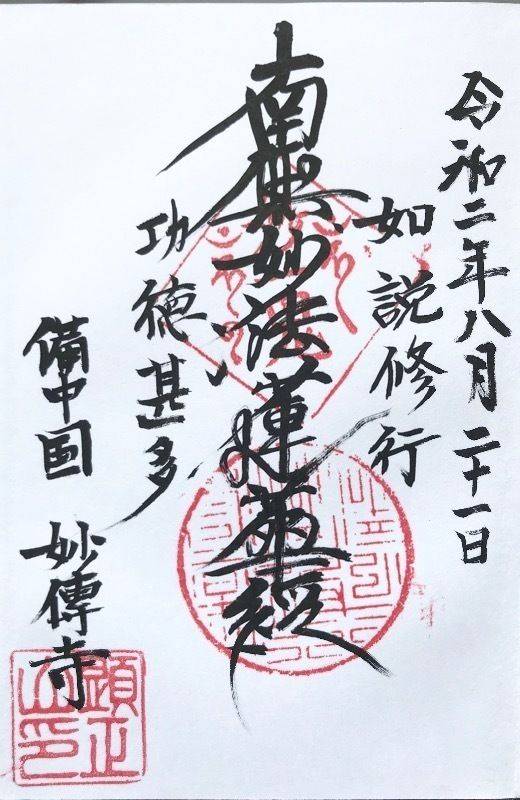 令和二年八月二十一日
如説修行
南無妙法蓮華経
功徳甚多
備中国 妙傳寺
顕正山印